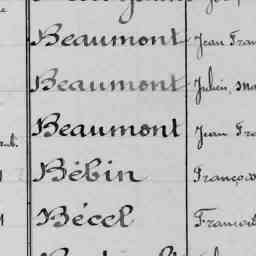 Beaumont Jean Fran
Beaumont Julien, Ma
Beaumont Jean Fra
Bébin Françoi
Bécel François